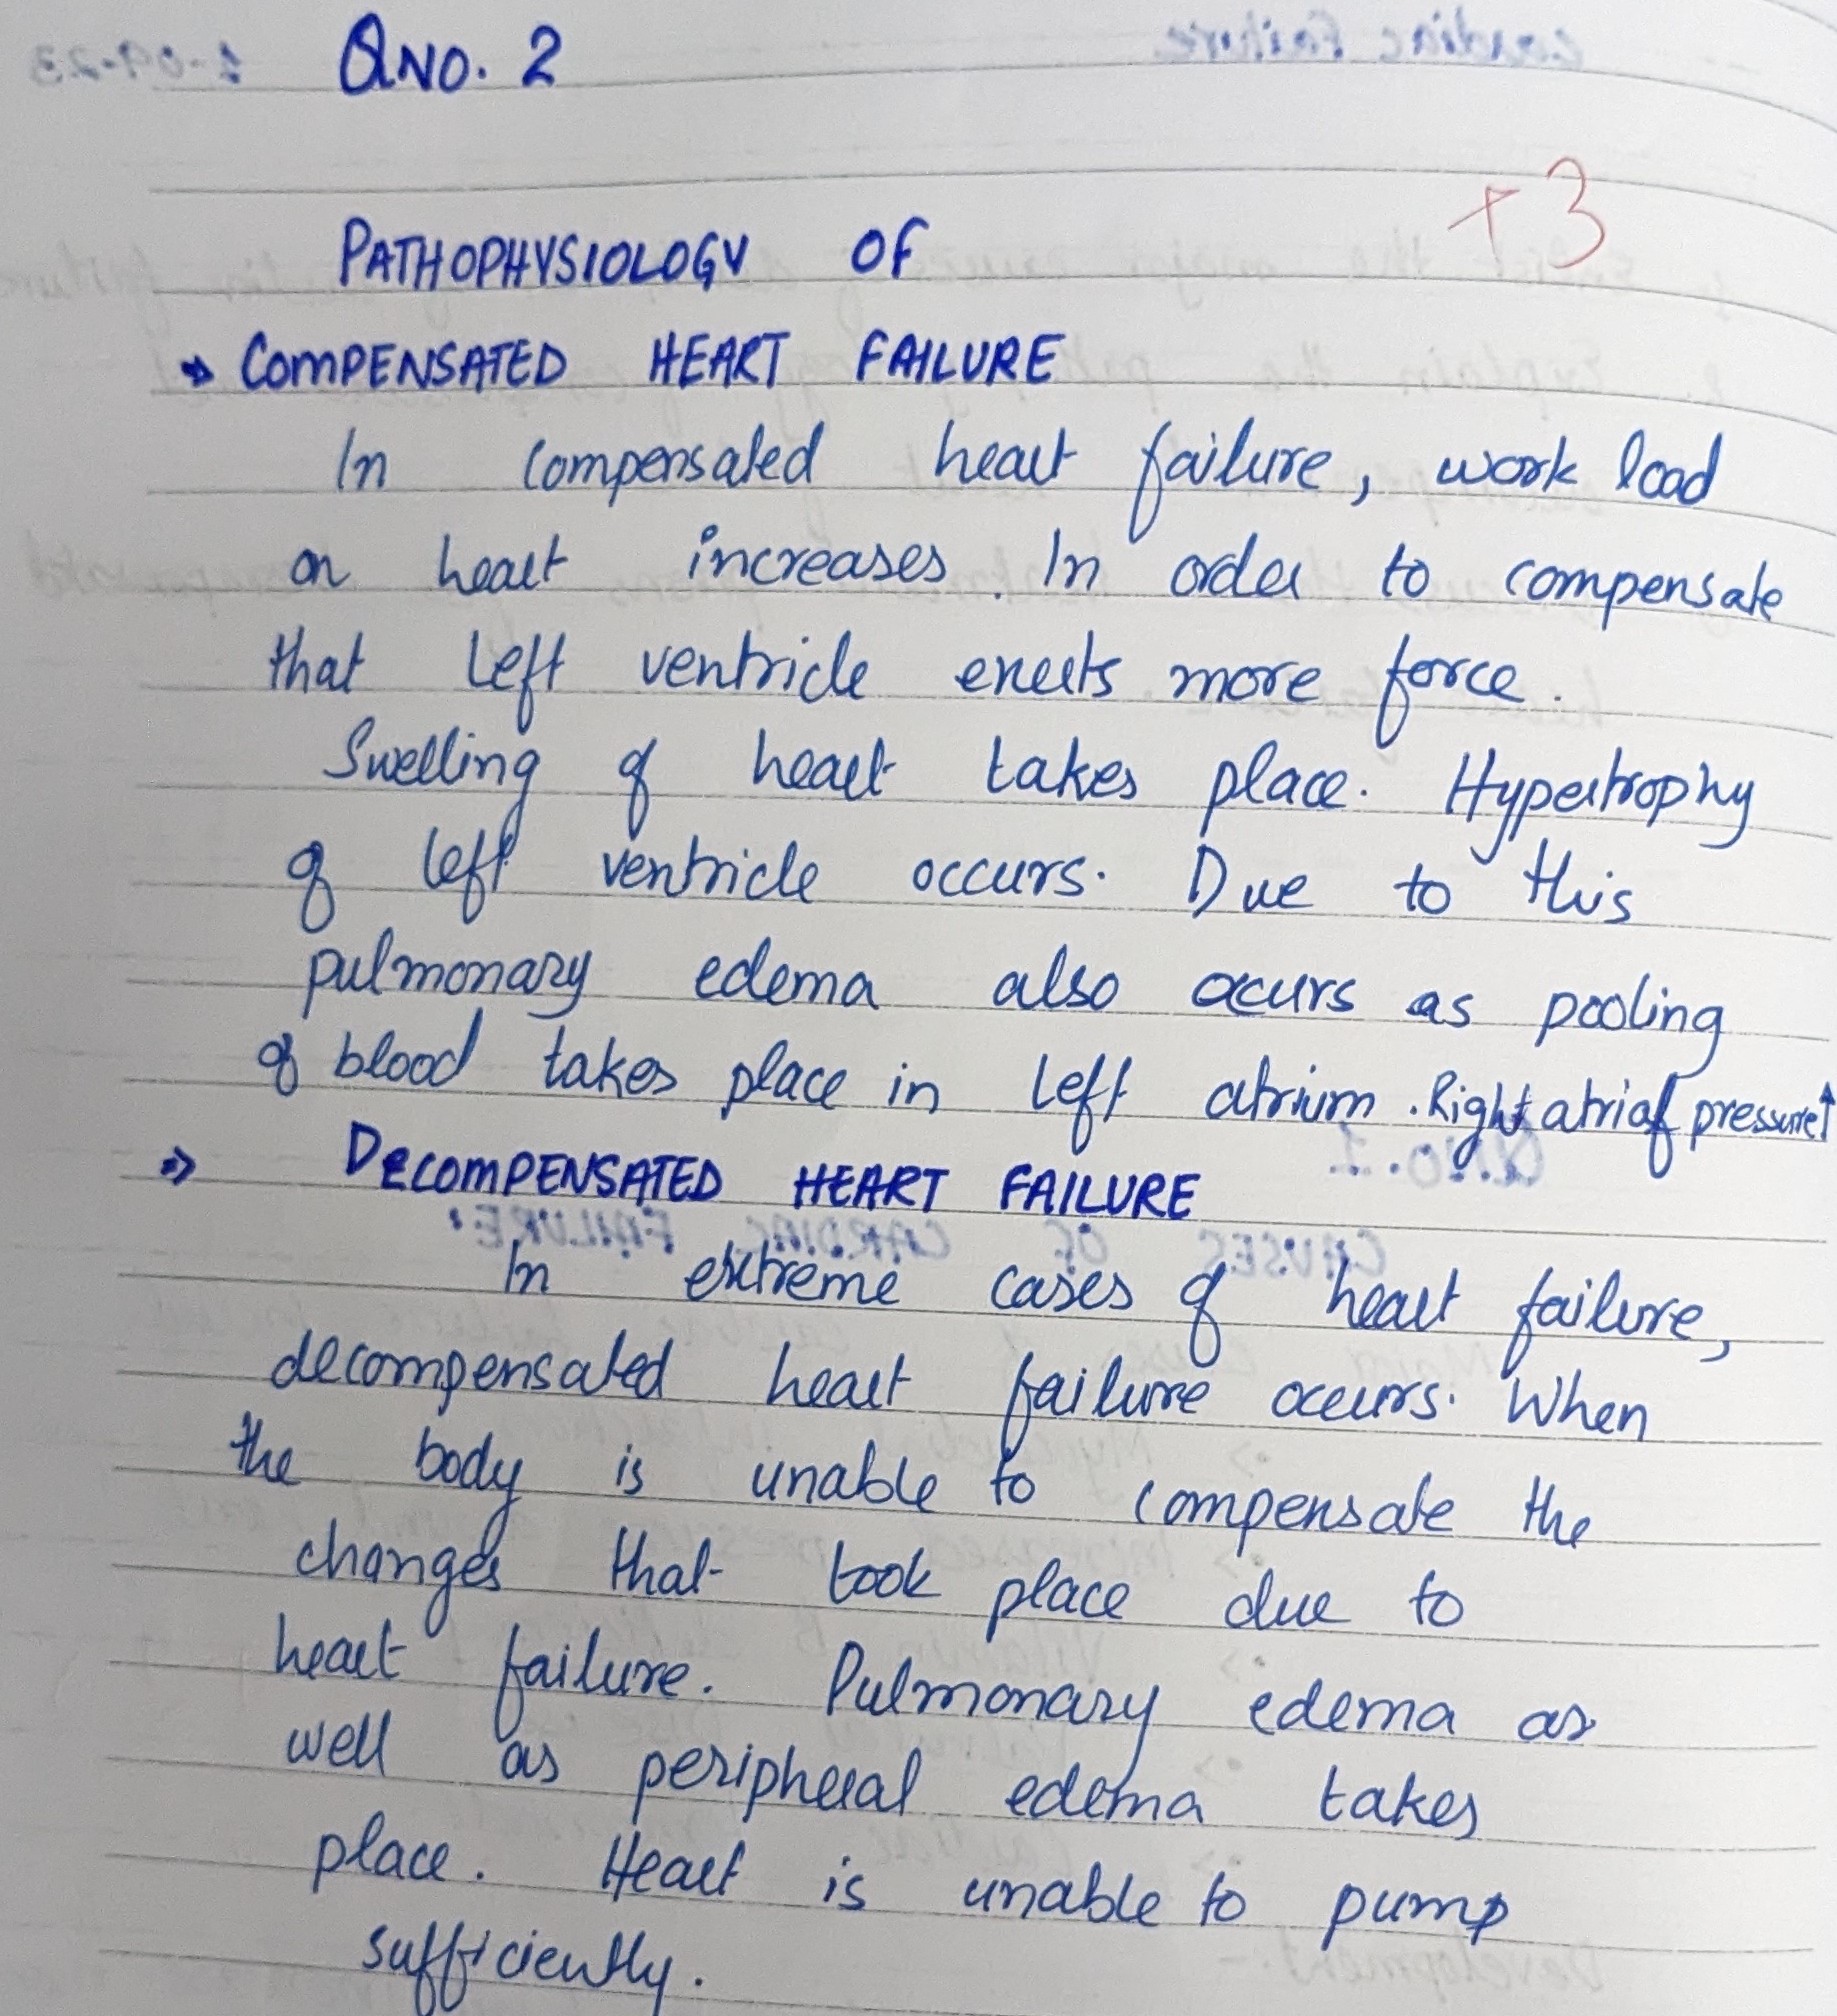 QNO. 2
+3
PATHOPHYSIOLOGY OF
→ COMPENSATED HEART FAILURE
In compensated heart failure, work load
on heart increases. In order to compensate
that left ventricle exerts more force.
Swelling of heart takes place. Hypertrophy
of left ventricle occurs. Due to this
pulmonary edema also occurs as pooling
of blood takes place in left atrium. Right atrial pressure↑
⇒ DECOMPENSATED HEART FAILURE
In extreme cases of heart failure,
decompensated heart failure occurs. When
the body is unable to compensate the
changes that took place due to
heart failure. Pulmonary edema as
well as peripheral edema takes
place. Heart is unable to pump
sufficiently.